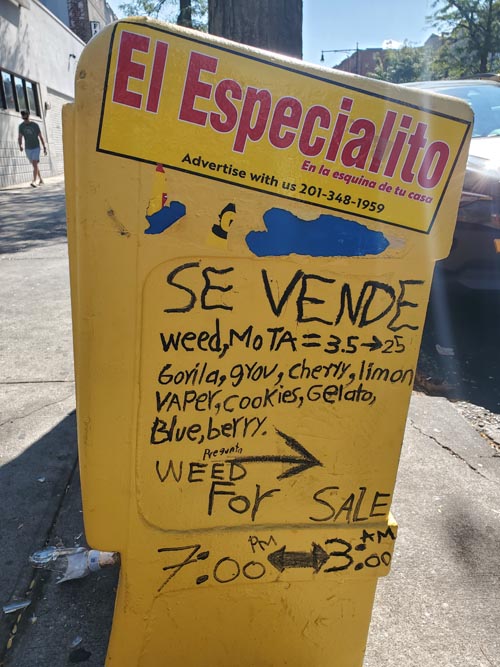 El Especialito
En la esquina de tu casa
Advertise with us 201-348-1959
SE VENDE
weed, MOTA = 3.5 → 25
Gorila, grou, cherry, limon
VAPer, cookies, Gelato,
Blue, berry.
Pregunta
WEED →
For SALE
7:00 PM ↔ 3:00 AM